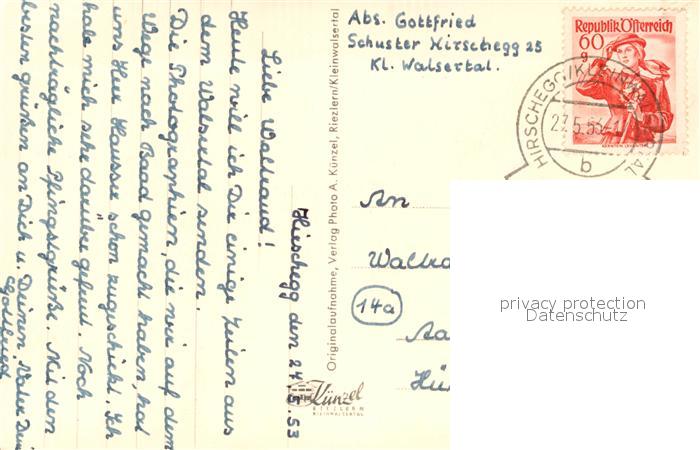 Hirschegg den 24.5.53
Liebe Waltraud!
Heute will ich Dir einige Zeilen aus
dem Walsertal senden.
Die Photographien, die wir auf dem
Wege nach Baad gemacht haben, hat
uns Herr Hausser schön zugschickt. Ich
habe mich sehr darüber gefreut. Noch
nachträgliche Pfingstgrüße. Mit den
besten grüßen an Dich u. Deinen Vater Dein
Gottfried
Originalaufnahme, Verlag Photo A. Künzel, Riezlern/Kleinwalsertal
Künzel
RIEZLERN
KLEINWALSERTAL
Abs. Gottfried
Schuster Hirschegg 25
Kl. Walsertal.
Republik Österreich
60
g
HIRSCHEGG/KLEINWALSERTAL
b
An
Waltra
14a
Aa
Hü
privacy protection
Datenschutz